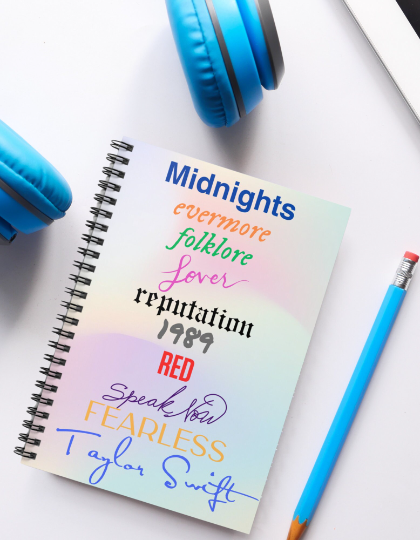 Midnights
evermore
folklore
Lover
reputation
1989
RED
Speak Now
FEARLESS
Taylor Swift